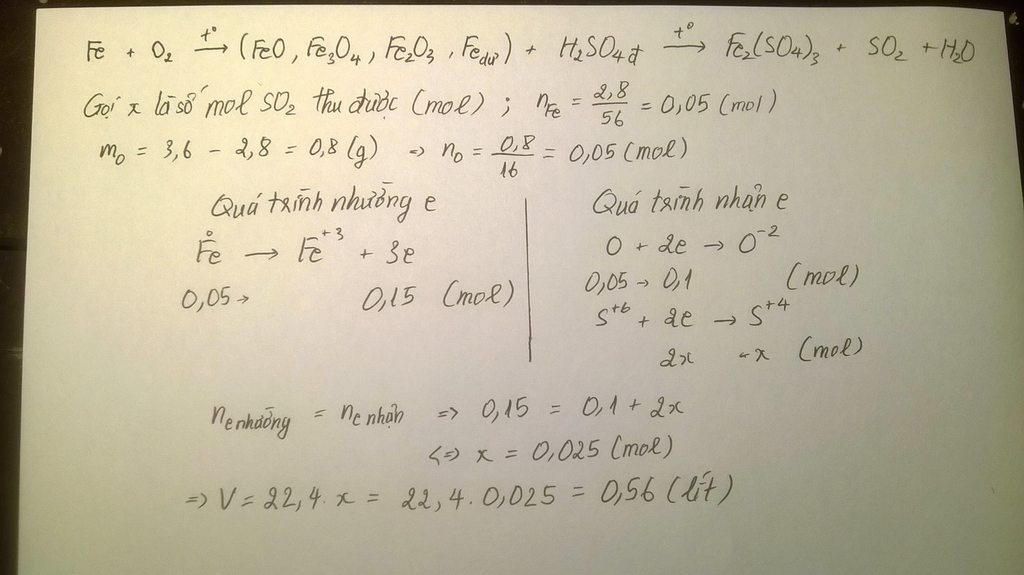 Fe + O₂ —t°→ (FeO, Fe₃O₄, Fe₂O₃, Fe dư) + H₂SO₄ đ —t°→ Fe₂(SO₄)₃ + SO₂ + H₂O
Gọi x là số mol SO₂ thu được (mol) ; nFe = 2,8/56 = 0,05 (mol)
mO = 3,6 - 2,8 = 0,8 (g) => nO = 0,8/16 = 0,05 (mol)
Quá trình nhường e
Fe⁰ → Fe⁺³ + 3e
0,05 → 0,15 (mol)
Quá trình nhận e
O + 2e → O⁻²
0,05 → 0,1 (mol)
S⁺⁶ + 2e → S⁺⁴
2x ← x (mol)
ne nhường = ne nhận => 0,15 = 0,1 + 2x
<=> x = 0,025 (mol)
=> V = 22,4. x = 22,4. 0,025 = 0,56 (lít)